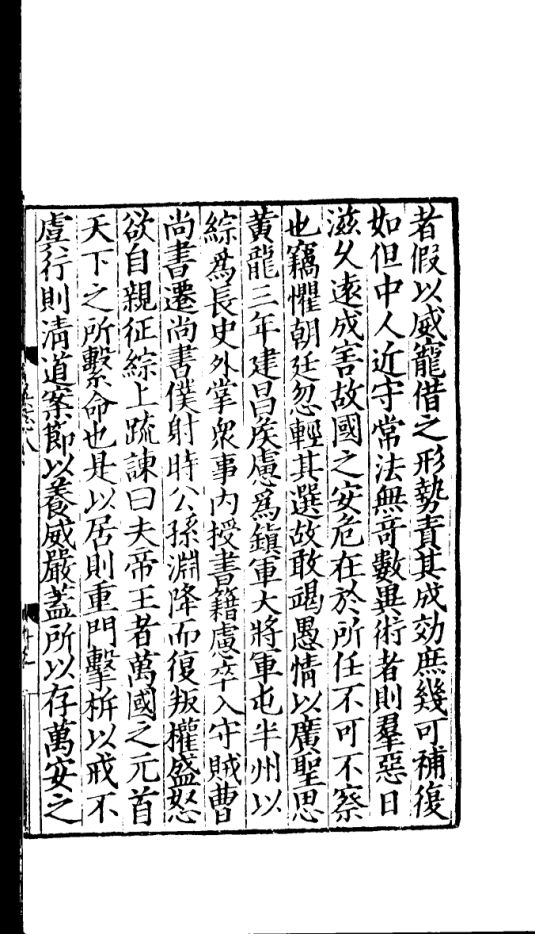 者假以威寵借之形勢責其成効庶幾可補復
如但中人近守常法無竒數異術者則羣惡日
滋久遠成害故國之安危在於所任不可不察
也竊懼朝廷忽輕其選故敢竭愚情以廣聖思
黃龍三年建昌矦慮爲鎮軍大將軍屯半州以
綜爲長史外掌衆事内授書籍慮卒入守賊曹
尚書遷尚書僕射時公孫淵降而復叛權盛怒
欲自親征綜上疏諫曰夫帝王者萬國之元首
天下之所繫命也是以居則重門擊柝以戒不
虞行則清道案節以養威嚴蓋所以存萬安之